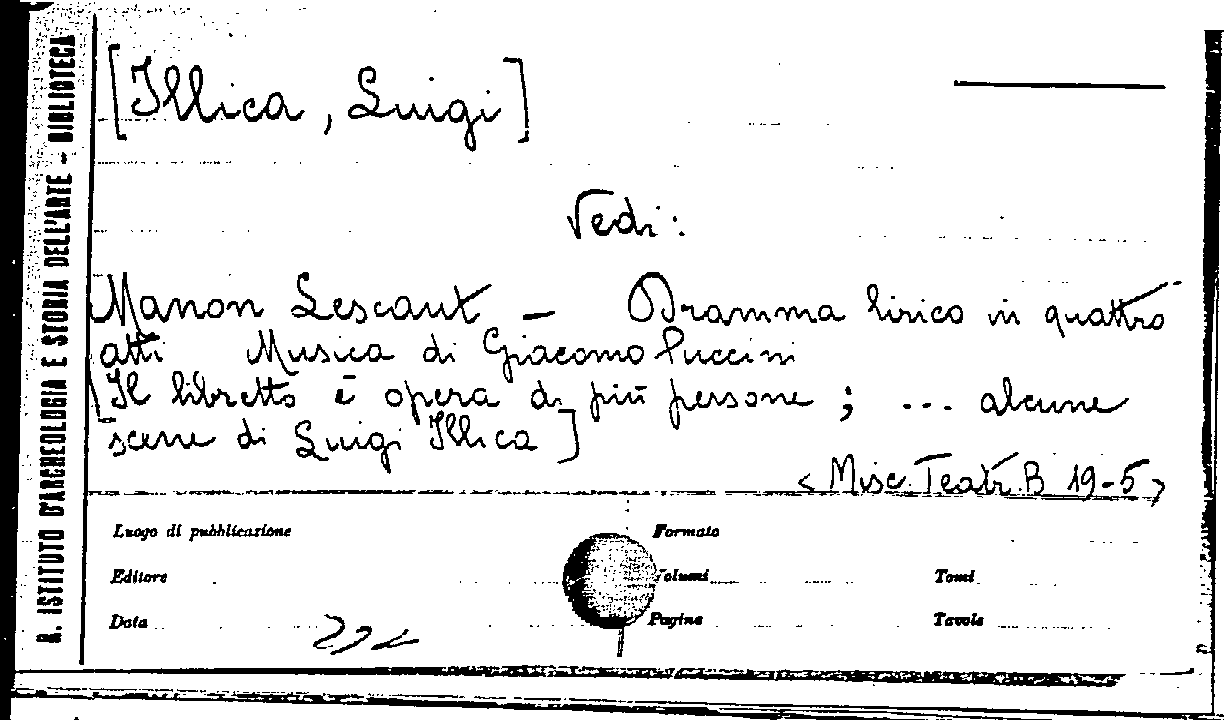 R. ISTITUTO D'ARCHEOLOGIA E STORIA DELL'ARTE - BIBLIOTECA
[Illica, Luigi]
Vedi:
Manon Lescaut – Dramma lirico in quattro
atti Musica di Giacomo Puccini
[Il libretto è opera di più persone; ... alcune
scene di Luigi Illica]
<Misc. Teatr. B 19-5>
Luogo di pubblicazione
Formato
Editore
Volumi
Tomi
Data
Pagine
Tavole